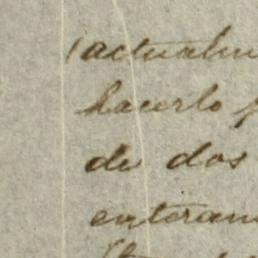 (actualm
hacerlo p
de dos
enteram